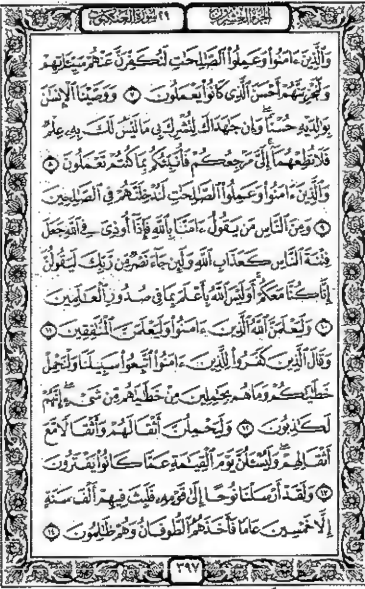 الجزء العشرون ٢٩ سورة العنكبوت
وَٱلَّذِينَ ءَامَنُوا۟ وَعَمِلُوا۟ ٱلصَّٰلِحَٰتِ لَنُكَفِّرَنَّ عَنْهُمْ سَيِّـَٔاتِهِمْ
وَلَنَجْزِيَنَّهُمْ أَحْسَنَ ٱلَّذِى كَانُوا۟ يَعْمَلُونَ ٧ وَوَصَّيْنَا ٱلْإِنسَٰنَ
بِوَٰلِدَيْهِ حُسْنًا ۖ وَإِن جَٰهَدَاكَ لِتُشْرِكَ بِى مَا لَيْسَ لَكَ بِهِۦ عِلْمٌ
فَلَا تُطِعْهُمَآ ۚ إِلَىَّ مَرْجِعُكُمْ فَأُنَبِّئُكُم بِمَا كُنتُمْ تَعْمَلُونَ ٨
وَٱلَّذِينَ ءَامَنُوا۟ وَعَمِلُوا۟ ٱلصَّٰلِحَٰتِ لَنُدْخِلَنَّهُمْ فِى ٱلصَّٰلِحِينَ
٩ وَمِنَ ٱلنَّاسِ مَن يَقُولُ ءَامَنَّا بِٱللَّهِ فَإِذَآ أُوذِىَ فِى ٱللَّهِ جَعَلَ
فِتْنَةَ ٱلنَّاسِ كَعَذَابِ ٱللَّهِ وَلَئِن جَآءَ نَصْرٌ مِّن رَّبِّكَ لَيَقُولُنَّ
إِنَّا كُنَّا مَعَكُمْ ۚ أَوَلَيْسَ ٱللَّهُ بِأَعْلَمَ بِمَا فِى صُدُورِ ٱلْعَٰلَمِينَ
١٠ وَلَيَعْلَمَنَّ ٱللَّهُ ٱلَّذِينَ ءَامَنُوا۟ وَلَيَعْلَمَنَّ ٱلْمُنَٰفِقِينَ ١١
وَقَالَ ٱلَّذِينَ كَفَرُوا۟ لِلَّذِينَ ءَامَنُوا۟ ٱتَّبِعُوا۟ سَبِيلَنَا وَلْنَحْمِلْ
خَطَٰيَٰكُمْ وَمَا هُم بِحَٰمِلِينَ مِنْ خَطَٰيَٰهُم مِّن شَىْءٍ ۖ إِنَّهُمْ
لَكَٰذِبُونَ ١٢ وَلَيَحْمِلُنَّ أَثْقَالَهُمْ وَأَثْقَالًا مَّعَ
أَثْقَالِهِمْ ۖ وَلَيُسْـَٔلُنَّ يَوْمَ ٱلْقِيَٰمَةِ عَمَّا كَانُوا۟ يَفْتَرُونَ
١٣ وَلَقَدْ أَرْسَلْنَا نُوحًا إِلَىٰ قَوْمِهِۦ فَلَبِثَ فِيهِمْ أَلْفَ سَنَةٍ
إِلَّا خَمْسِينَ عَامًا فَأَخَذَهُمُ ٱلطُّوفَانُ وَهُمْ ظَٰلِمُونَ ١٤
٣٩٧